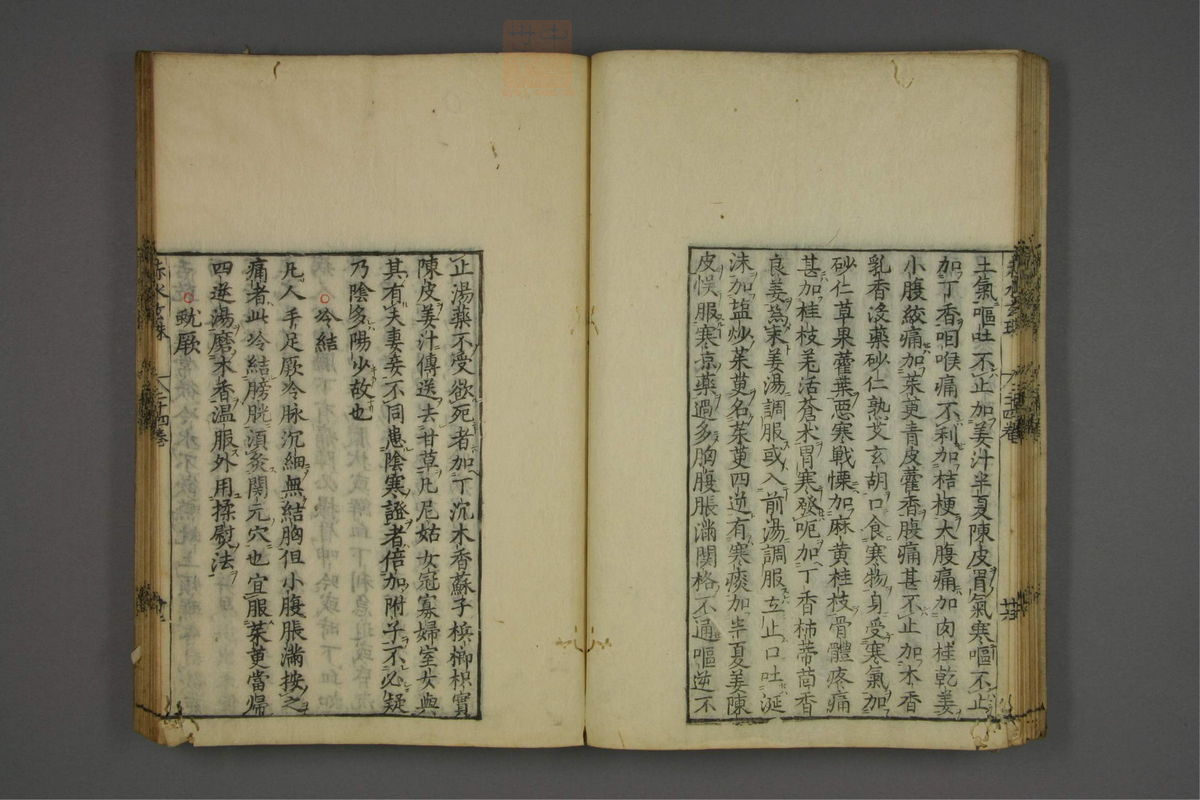 土氣嘔吐不止加姜汁半夏陳皮胃氣寒嘔不止
加丁香咽喉痛不利加桔梗大腹痛加肉桂乾姜
小腹絞痛加茱萸青皮藿香腹痛甚不止加木香
乳香沒藥砂仁熟艾玄胡口食寒物身受寒氣加
砂仁草果藿葉惡寒戰慄加麻黄桂枝骨體疼痛
甚加桂枝羌活蒼术胃寒發呃加丁香柿蒂茴香
良姜為末姜湯調服或入前湯調服立止口吐涎
沫加塩炒茱萸名茱萸四逆有寒痰加半夏姜陳
皮悞服寒凉藥過多胸腹脹滿関格不通嘔逆不
止湯藥不受欲死者加丁沉木香蘇子檳榔枳實
陳皮姜汁傳送去甘草凡尼姑女冠寡婦室女與
其有夫妻妾不同患陰寒證者倍加附子不必疑
乃陰多陽少故也
○冷結
凡人手足厥冷脉沉細無結胸但小腹脹滿按之
痛者此冷結膀胱須灸関元穴也宜服茱萸當歸
四逆湯磨木香温服外用揉熨法
○厥
赤水玄珠 二十四卷